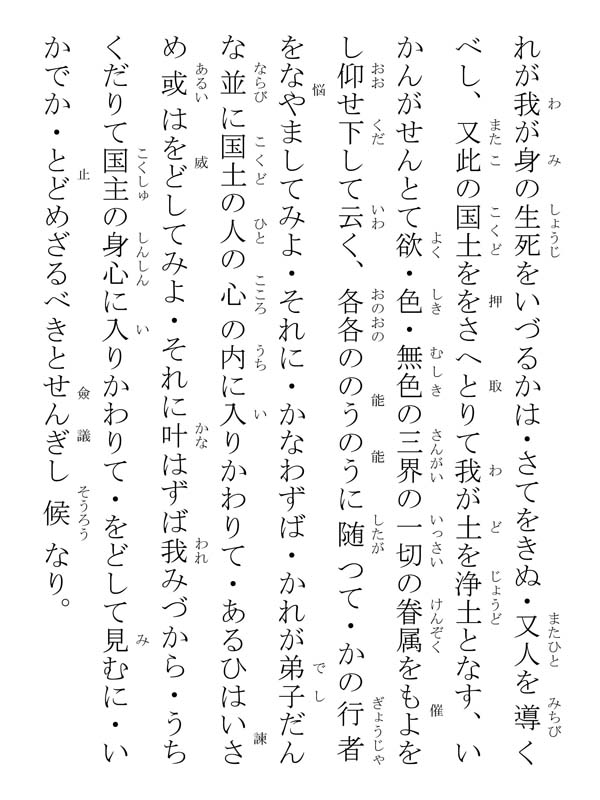 れが我が身の生死をいづるかは・さてをきぬ・又人を導く
べし、又此の国土ををさへとりて我が土を浄土となす、い
かんがせんとて欲・色・無色の三界の一切の眷属をもよを
し仰せ下して云く、各各ののうのうに随つて・かの行者
をなやましてみよ・それに・かなわずば・かれが弟子だん
な並に国土の人の心の内に入りかわりて・あるひはいさ
め或はをどしてみよ・それに叶はずば我みづから・うち
くだりて国主の身心に入りかわりて・をどして見むに・い
かでか・とどめざるべきとせんぎし候なり。